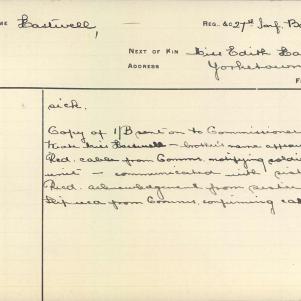 ME Hastwell, REG. &C 27th Inf. B
NEXT OF KIN Miss Edith Ha
ADDRESS Yorketown
F
sick.
Copy of I/B sent on to Commissioner
Miss Hastwell — brother's name appea
Recd. cable from Comms. notifying
unit — communicated with sist
Recd. acknowledgment from sister
Slip recd from Comms. confirming cab